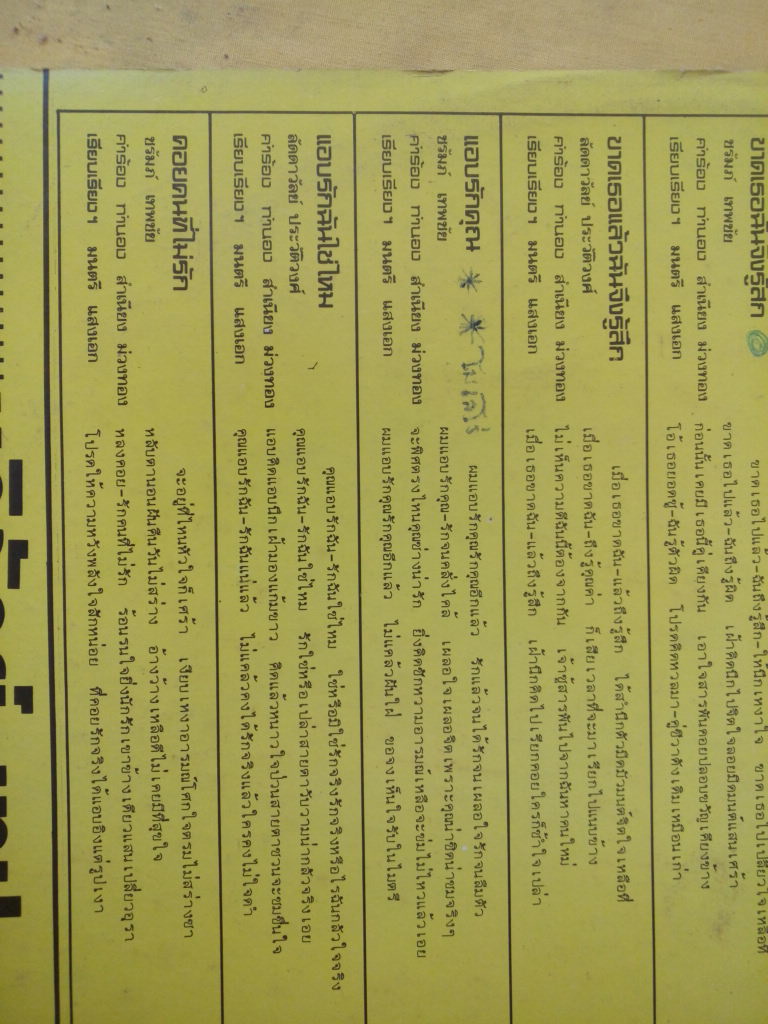 ขาดเธอฉันจึงรู้สึก
ชรัมภ์ เทพชัย
คำร้อง ทำนอง สำเนียง ม่วงทอง
เรียบเรียงฯ มนตรี แสงเอก
ขาดเธอไปแล้ว-ฉันถึงรู้สึก-ให้นึกเหงาใจ ขาดเธอไปเปลี่ยวใจเหลือที่
ขาดเธอไปแล้ว-ฉันถึงรู้ผิด เฝ้าคิดนึกไปจิตใจลอยมีดมนต์แสนเศร้า
ก่อนนั้นเคยมีเธอนี้คู่เคียงกัน เอาใจสารพันคอยปลอบขวัญเคียงข้าง
โอ้เธอยอดชู้-ฉันรู้ตัวผิด โปรดคิดหวลมา-คู่ชีวาดังเดิมเหมือนเก่า
ขาดเธอแล้วฉันจึงรู้สึก
ลัดดาวัลย์ ประวัติวงศ์
คำร้อง ทำนอง สำเนียง ม่วงทอง
เรียบเรียงฯ มนตรี แสงเอก
เมื่อเธอขาดฉัน-แล้วถึงรู้สึก ได้สำนึกตัวมืดมัวมนต์จิตใจเหลือที่
เมื่อเธอขาดฉัน-ถึงรู้คุณค่า ก็เสียเวลาที่จะมาเรียกไปแนบข้าง
ไม่เห็นความดีฉันนี้ต้องจากกัน เจ้าชู้สารพันไปจากฉันหาคนใหม่
เมื่อเธอขาดฉัน-แล้วถึงรู้สึก เฝ้านึกคิดไปเรียกคอยใครก็ช้ำใจเปล่า
แอบรักคุณ ** ไม่เคร่
ชรัมภ์ เทพชัย
คำร้อง ทำนอง สำเนียง ม่วงทอง
เรียบเรียงฯ มนตรี แสงเอก
ผมแอบรักคุณรักคุณอีกแล้ว รักแล้วจนได้รักจนเผลอใจรักจนลืมตัว
ผมแอบรักคุณ-รักจนคลั่งไคล้ เผลอใจเผลอจิตเพราะคุณน่าชิดน่าชมจริงๆ
จะพิศตรงไหนคุณช่างน่ารัก ยิ่งคิดชักหวามอารมณ์เหลือจะข่มไม่ไหวแล้วเอย
ผมแอบรักคุณรักคุณอีกแล้ว ไม่แคล้วฝันใฝ่ ขอจงเห็นใจรับในไมตรี
แอบรักฉันใช่ไหม
ลัดดาวัลย์ ประวัติวงศ์
คำร้อง ทำนอง สำเนียง ม่วงทอง
เรียบเรียงฯ มนตรี แสงเอก
คุณแอบรักฉัน-รักฉันใช่ไหม ใช่หรือมิใช่รักจริงรักจริงหรือไรฉันกลัวใจจริง
คุณแอบรักฉัน-รักฉันใช่ไหม รักใช่หรือเปล่าสายตาวับวามน่ากลัวจริงเอย
แอบคิดแอบนึกเฝ้ามองแก้มขาว คิดแล้วหนาวใจป่วนสายตาชวนจะชมชื่นใจ
คุณแอบรักฉัน-รักฉันแน่แล้ว ไม่แคล้วคงได้รักจริงแล้วใครคงไม่ใจดำ
คอยคนที่ไม่รัก
ชรัมภ์ เทพชัย
คำร้อง ทำนอง สำเนียง ม่วงทอง
เรียบเรียงฯ มนตรี แสงเอก
จะอยู่ที่ไหนหัวใจก็เศร้า เงียบเหงาอารมณ์โศกใจตรมไม่สร่างซา
หลับตานอนฝันคืนวันไม่สร่าง อ้างว้างเหลือดีไม่เคยมีที่สุขใจ
หลงคอย-รักคนที่ไม่รัก ร้อนรนใจยิ่งนักรักเขาข้างเดียวแสนเปลี่ยวอุรา
โปรดให้ความหวังพลังใจสักหน่อย ที่คอยรักจริงได้แอบอิงแค่รูปเงา